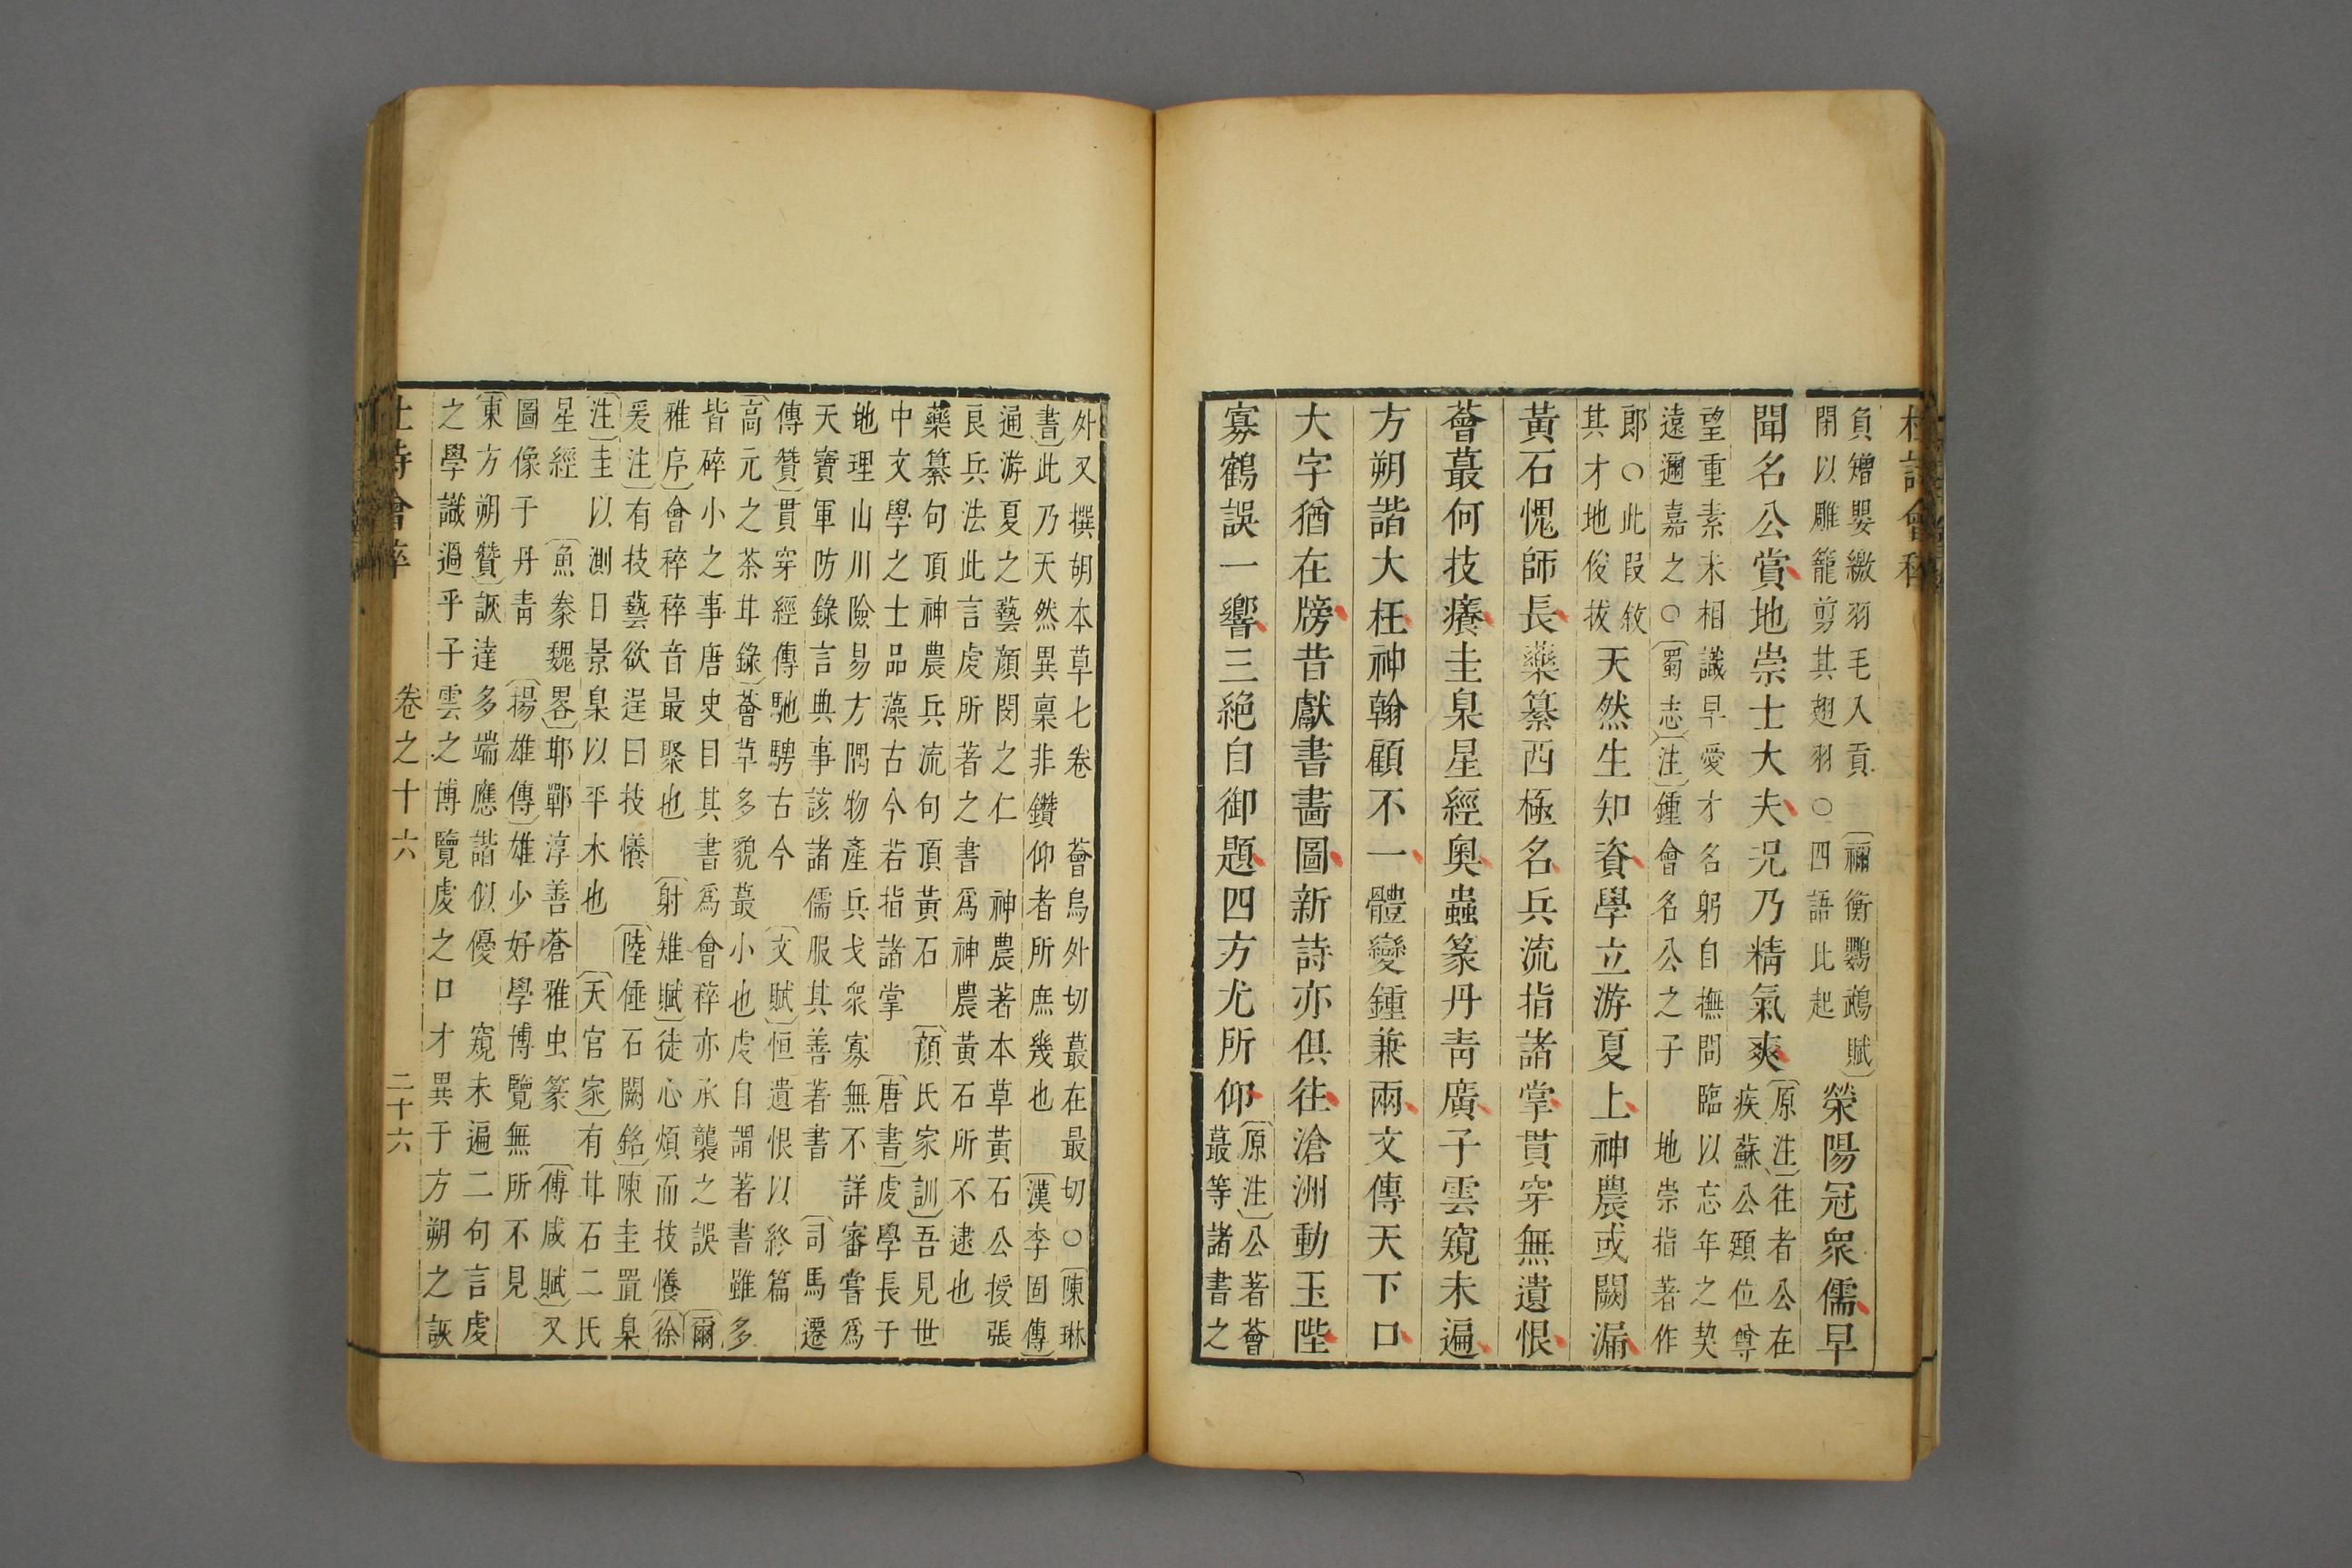 杜詩會稡
負矰嬰繳羽毛入貢 〔禰衡鸚鵡賦〕
閉以雕籠剪其翅羽○四語比起
滎陽冠衆儒早
聞名公賞地崇士大夫况乃精氣爽
〔原注〕往者公在
疾蘇公頲位尊
望重素未相識早愛才名躬自撫問臨以忘年之契
遠邇嘉之○〔蜀志注〕鍾會名公之子 地崇指著作
郎○此叚敘
其才地俊拔
天然生知資學立游夏上神農或闕漏
黃石愧師長藥纂西極名兵流指諸掌貫穿無遺恨
薈蕞何技癢圭臬星經奧蟲篆丹青廣子雲窺未遍
方朔諧大枉神翰顧不一體變鍾兼兩文傳天下口
大字猶在牓昔獻書畵圖新詩亦俱往滄洲動玉陛
寡鶴誤一響三絕自御題四方尤所仰
〔原注〕公著薈
蕞等諸書之
外又撰胡本草七卷 薈烏外切蕞在最切○〔陳琳
書〕此乃天然異稟非鑽仰者所庶幾也 〔漢李固傳〕
通游夏之藝顔閔之仁 神農著本草黃石公授張
良兵法此言虔所著之書爲神農黃石所不逮也
藥纂句頂神農兵流句頂黃石 〔顔氏家訓〕吾見世
中文學之士品藻古今若指諸掌 〔唐書〕虔學長于
地理山川險易方隅物產兵戈衆寡無不詳審嘗爲
天寶軍防錄言典事該諸儒服其善著書 〔司馬遷
傳贊〕貫穿經傳馳騁古今 〔文賦〕恒遺恨以終篇
〔高元之茶甘錄〕薈草多貌蕞小也虔自謂著書雖多
皆碎小之事唐史目其書爲會稡亦承襲之誤 〔爾
雅序〕會稡稡音最聚也 〔射雉賦〕徒心煩而技懩〔徐
爰注〕有技藝欲逞曰技懩 〔陸倕石闕銘〕陳圭置臬
〔注〕圭以測日景臬以平水也 〔天官家〕有甘石二氏
星經 〔魚豢魏畧〕邯鄲淳善蒼雅虫篆 〔傅咸賦〕又
圖像于丹青 〔揚雄傳〕雄少好學博覽無所不見
〔東方朔贊〕詼達多端應諧似優 窺未遍二句言虔
之學識過乎子雲之博覽虔之口才異于方朔之詼
杜詩會稡 卷之十六 二十六